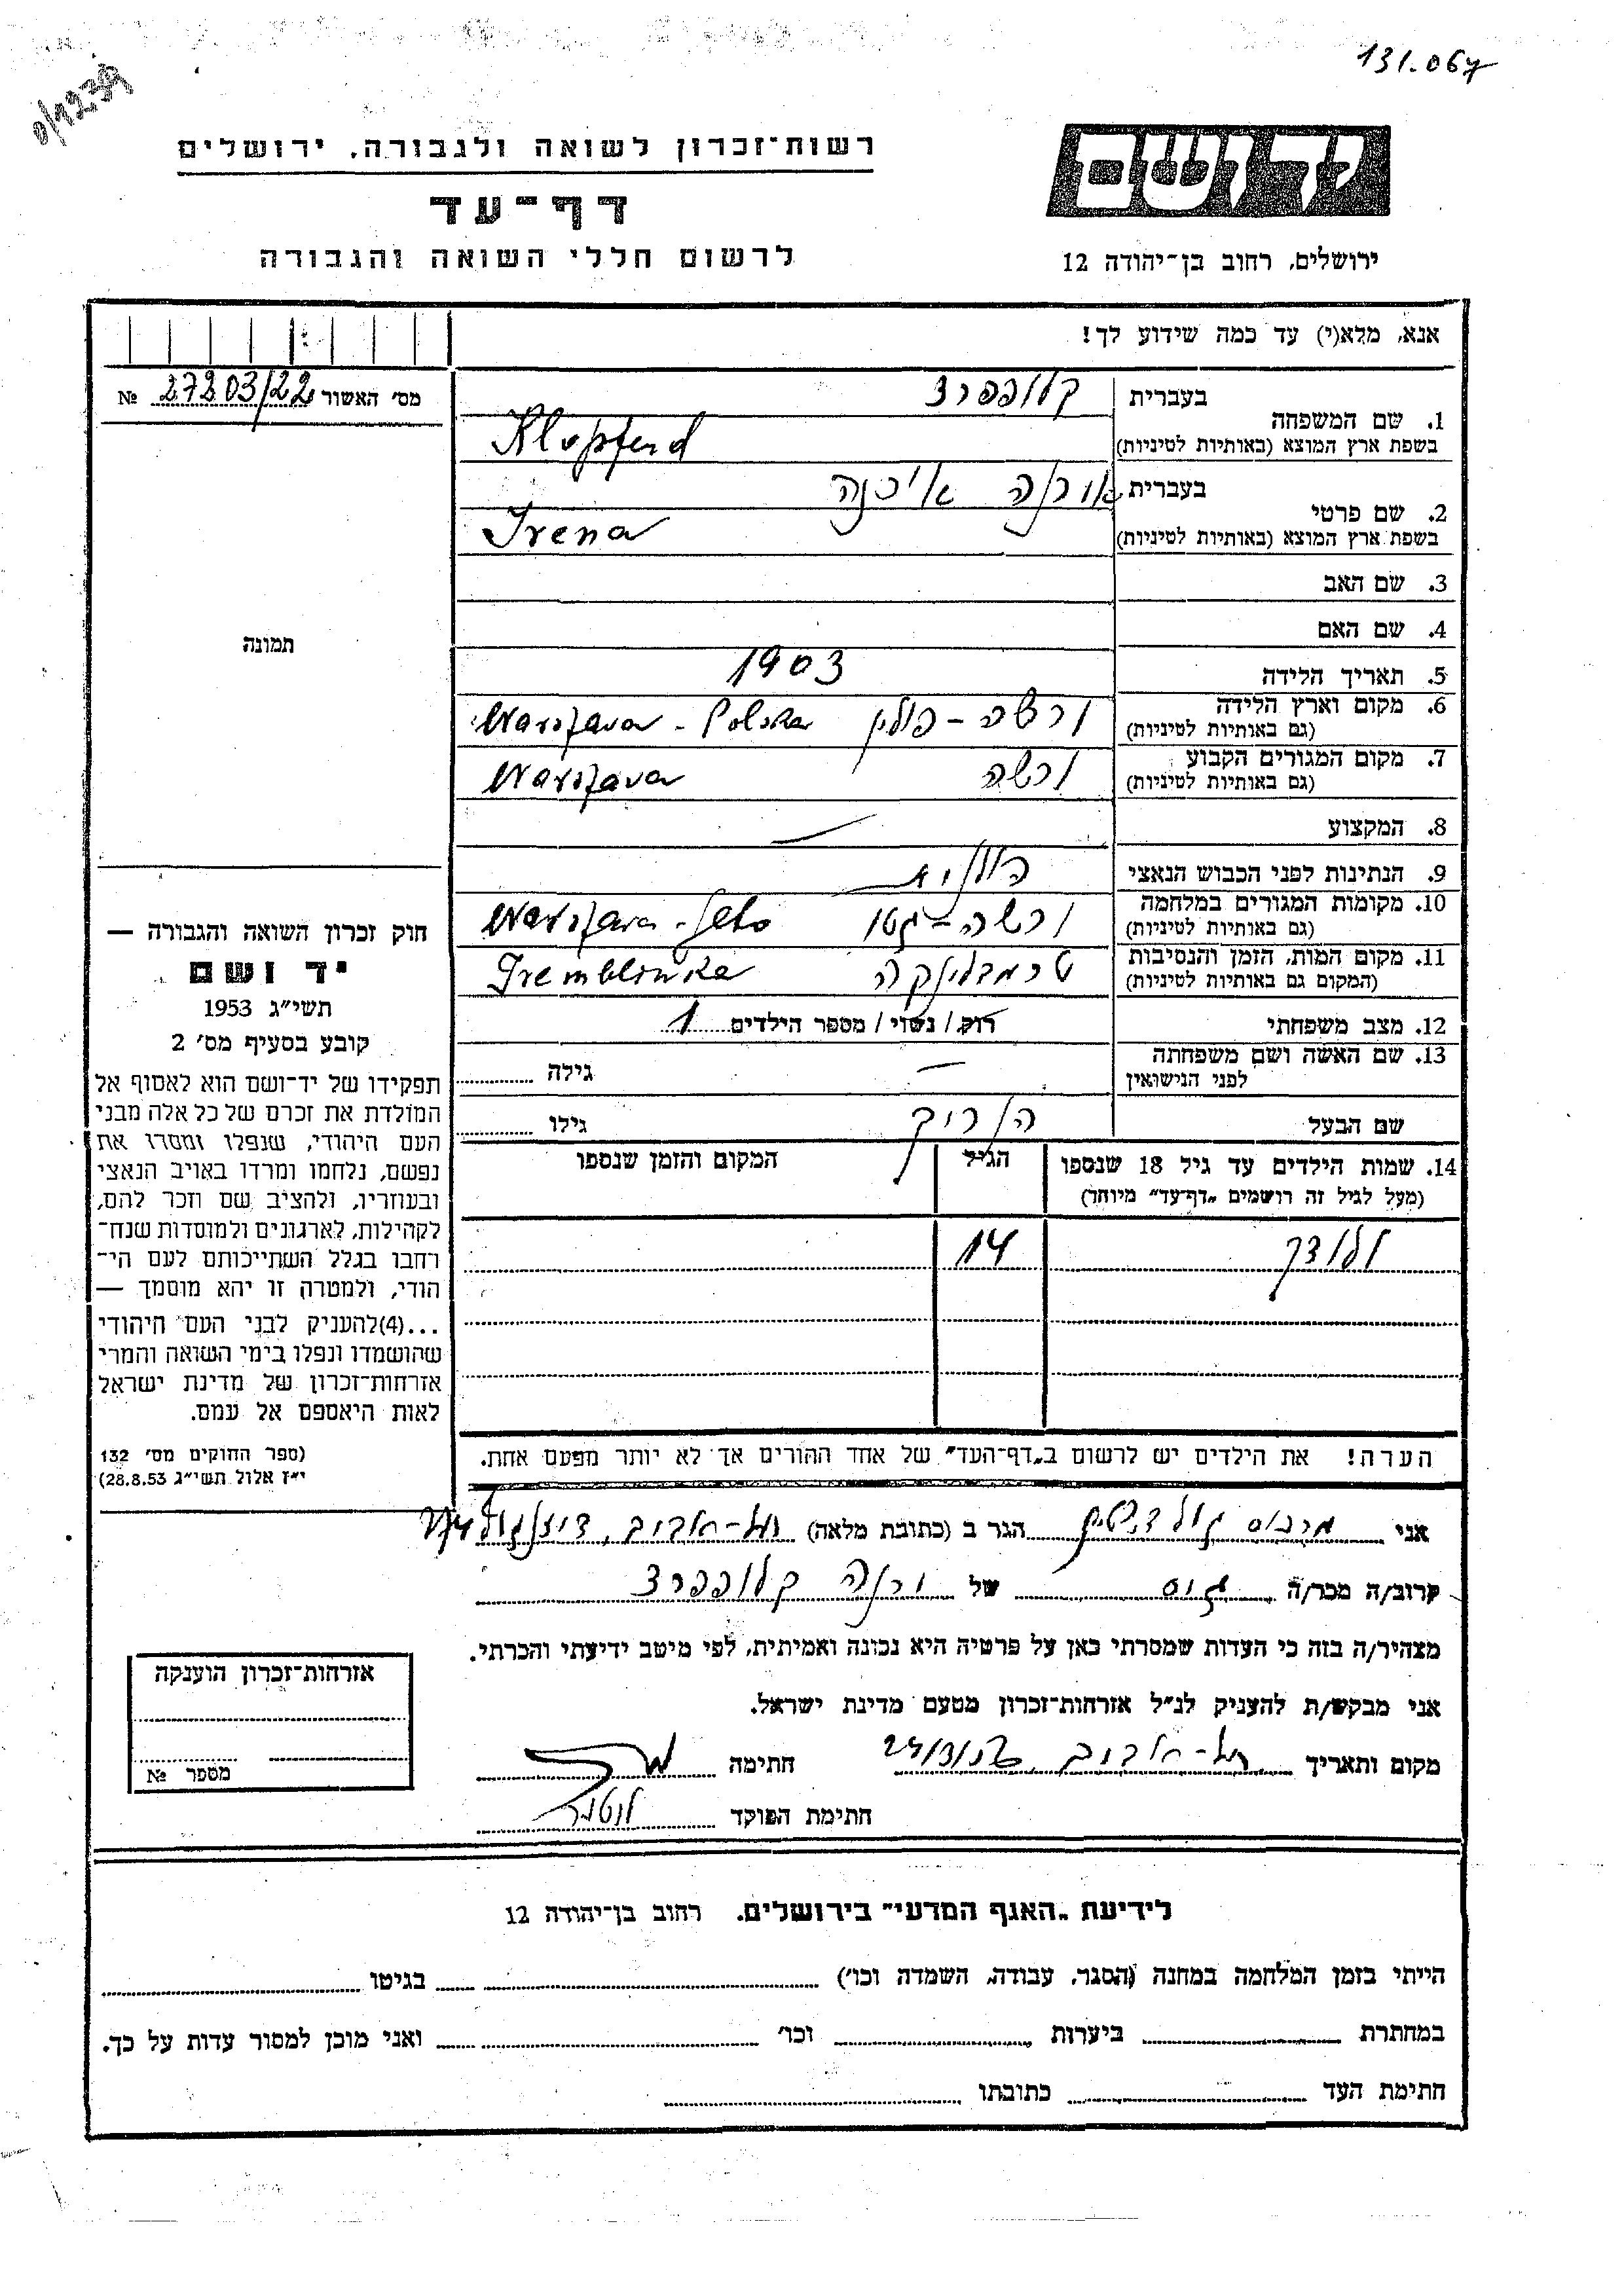 131.067
0/1239
רשות־זכרון לשואה ולגבורה, ירושלים
דף־עד
לרשום חללי השואה והגבורה
יד ושם
ירושלים, רחוב בן־יהודה 12
אנא, מלא(י) עד כמה שידוע לך!
מס׳ האשור 27203/22 №
1. שם המשפחה
בעברית קלופפרד
בשפת ארץ המוצא (באותיות לטיניות) Klopferd
2. שם פרטי
בעברית אירנה
בשפת ארץ המוצא (באותיות לטיניות) Irena
3. שם האב
4. שם האם
5. תאריך הלידה 1903
6. מקום וארץ הלידה
(גם באותיות לטיניות) ורשה – פולין Warszawa - Polska
7. מקום המגורים הקבוע
(גם באותיות לטיניות) ורשה Warszawa
8. המקצוע —
9. הנתינות לפני הכבוש הנאצי
10. מקומות המגורים במלחמה
(גם באותיות לטיניות) ורשה – גטו Warszawa - Geto
11. מקום המות, הזמן והנסיבות
(המקום גם באותיות לטיניות) טרמבלינקה Tremblinka
12. מצב משפחתי רוק / נשוי / מספר הילדים 1
13. שם האשה ושם משפחתה
לפני הנישואין — גילה
שם הבעל הנריק גילו
14. שמות הילדים עד גיל 18 שנספו
(מעל לגיל זה רושמים „דף־עד״ מיוחד)
הגיל
המקום והזמן שנספו
ולודק 14
הערה! את הילדים יש לרשום ב„דף־העד״ של אחד ההורים אך לא יותר מפעם אחת.
תמונה
חוק זכרון השואה והגבורה —
יד ושם
תשי״ג 1953
קובע בסעיף מס׳ 2
תפקידו של יד־ושם הוא לאסוף אל
המולדת את זכרם של כל אלה מבני
העם היהודי, שנפלו ומסרו את
נפשם, נלחמו ומרדו באויב הנאצי
ובעוזריו, ולהציב שם וזכר להם,
לקהילות, לארגונים ולמוסדות שנח־
רחבו בגלל השתייכותם לעם הי־
הודי, ולמטרה זו יהא מוסמך —
...(4)להעניק לבני העם היהודי
שהושמדו ונפלו בימי השואה והמרי
אזרחות־זכרון של מדינת ישראל
לאות היאספם אל עמם.
(ספר החוקים מס׳ 132
י״ז אלול תשי״ג 28.8.53)
אני מרכוס גולדשטיין הגר ב (כתובת מלאה) תל-אביב, דיזנגוף
קרוב/ה מכר/ה גיס של קלופפרד
מצהיר/ה בזה כי העדות שמסרתי כאן על פרטיה היא נכונה ואמיתית, לפי מיטב ידיעתי והכרתי.
אני מבקש/ת להעניק לנ״ל אזרחות־זכרון מטעם מדינת ישראל.
מקום ותאריך תל-אביב חתימה
חתימת הפוקד
אזרחות־זכרון הוענקה
מספר №
לידיעת „האגף המדעי״ בירושלים. רחוב בן־יהודה 12
הייתי בזמן המלחמה במחנה (הסגר, עבודה, השמדה וכו׳) בגיטו
במחתרת ביערות וכו׳ ואני מוכן למסור עדות על כך.
חתימת העד כתובתו